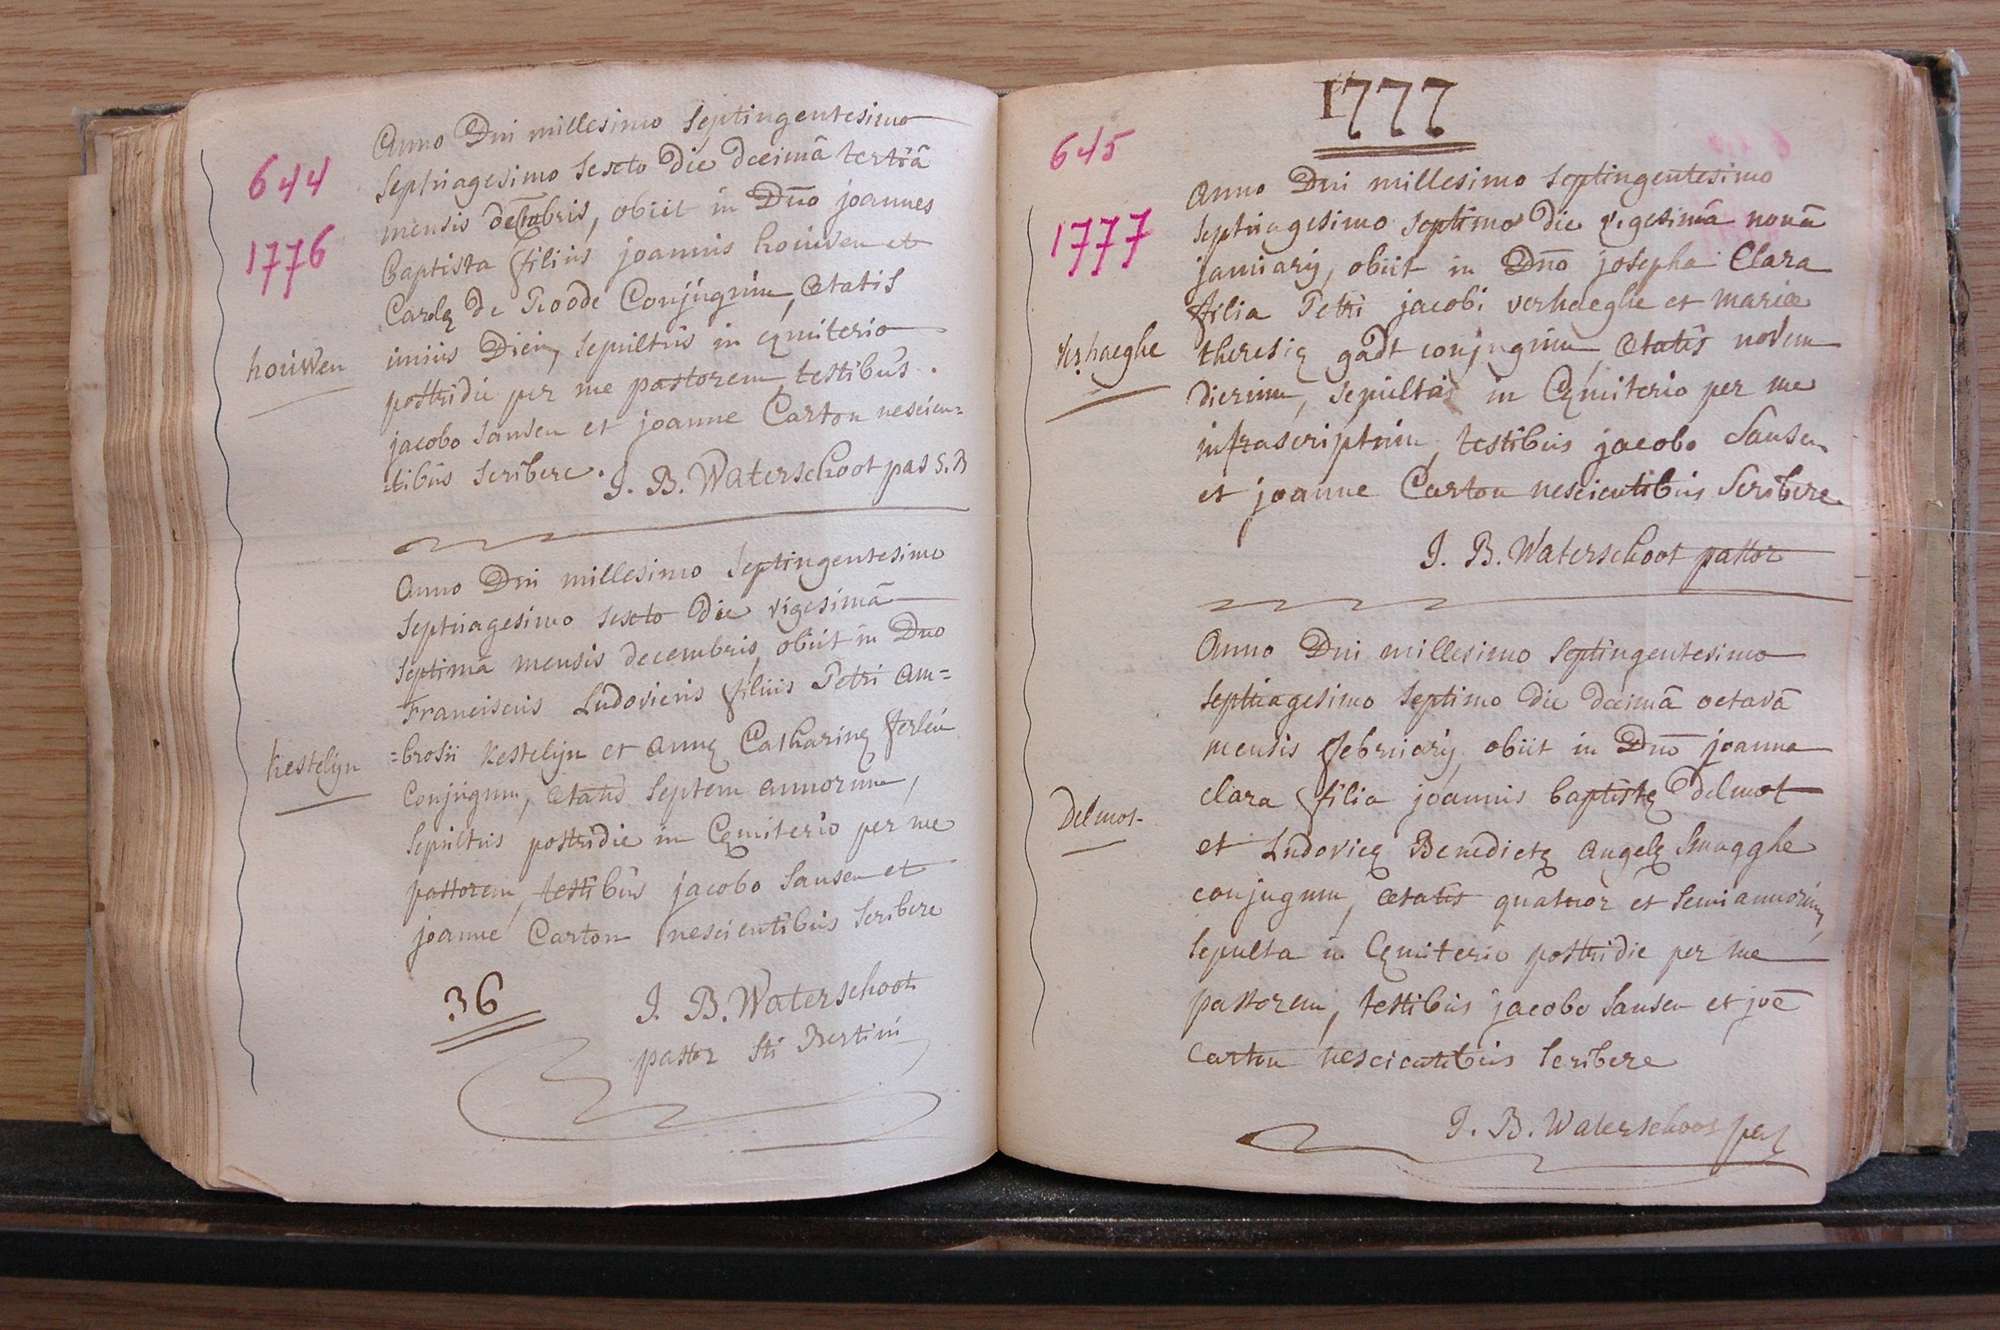 644
1776
Anno Dni millesimo Septingentesimo
septuagesimo sexto die decimâ tertiâ
mensis decembris, obiit in Dno joannes
Baptista filius joannis houwen et
Carolæ de Roode Conjugum, ætatis
houwen
unius Diei, sepultus in cæmiterio
postridie per me pastorem, testibus
jacobo Sansen et joanne Carton nescien=
tibus scribere.
J. B. Waterschoot pas S. B
Anno Dni millesimo septingentesimo
septuagesimo sexto die vigesimâ
septimâ mensis decembris, obiit in Dno
Franciscus Ludovicus filius Petri am=
=brosii Kestelyn et annæ Catharinæ
kestelyn
Conjugum, ætatis septem annorum,
sepultus postridie in Cæmiterio per me
pastorem, testibus jacobo Sansen et
joanne Carton nescientibus scribere
36
J. B. Waterschoot
pastor Sti Bertini
1777
645
1777
Anno Dni millesimo septingentesimo
septuagesimo septimo die vigesimâ nonâ
januarÿ, obiit in Dno josepha Clara
filia Petri jacobi verhaeghe et mariæ
verhaeghe
theresiæ gadt conjugum ætatis novem
dierum, sepulta in Cæmiterio per me
infrascriptum, testibus jacobo Sansen
et joanne Carton nescientibus Scribere
J. B. Waterschoot pastor
Anno Dni millesimo septingentesimo
septuagesimo septimo die decimâ octavâ
mensis februarÿ, obiit in Dno joanna
clara filia joannis baptistæ Delmot
Delmot
et Ludovicæ Benedictæ angelæ Smagghe
conjugum, ætatis quatuor et semi annorum,
sepulta in Cæmiterio postridie per me
pastorem, testibus jacobo Sansen et joē
Carton nescientibus scribere
J. B. Waterschoot